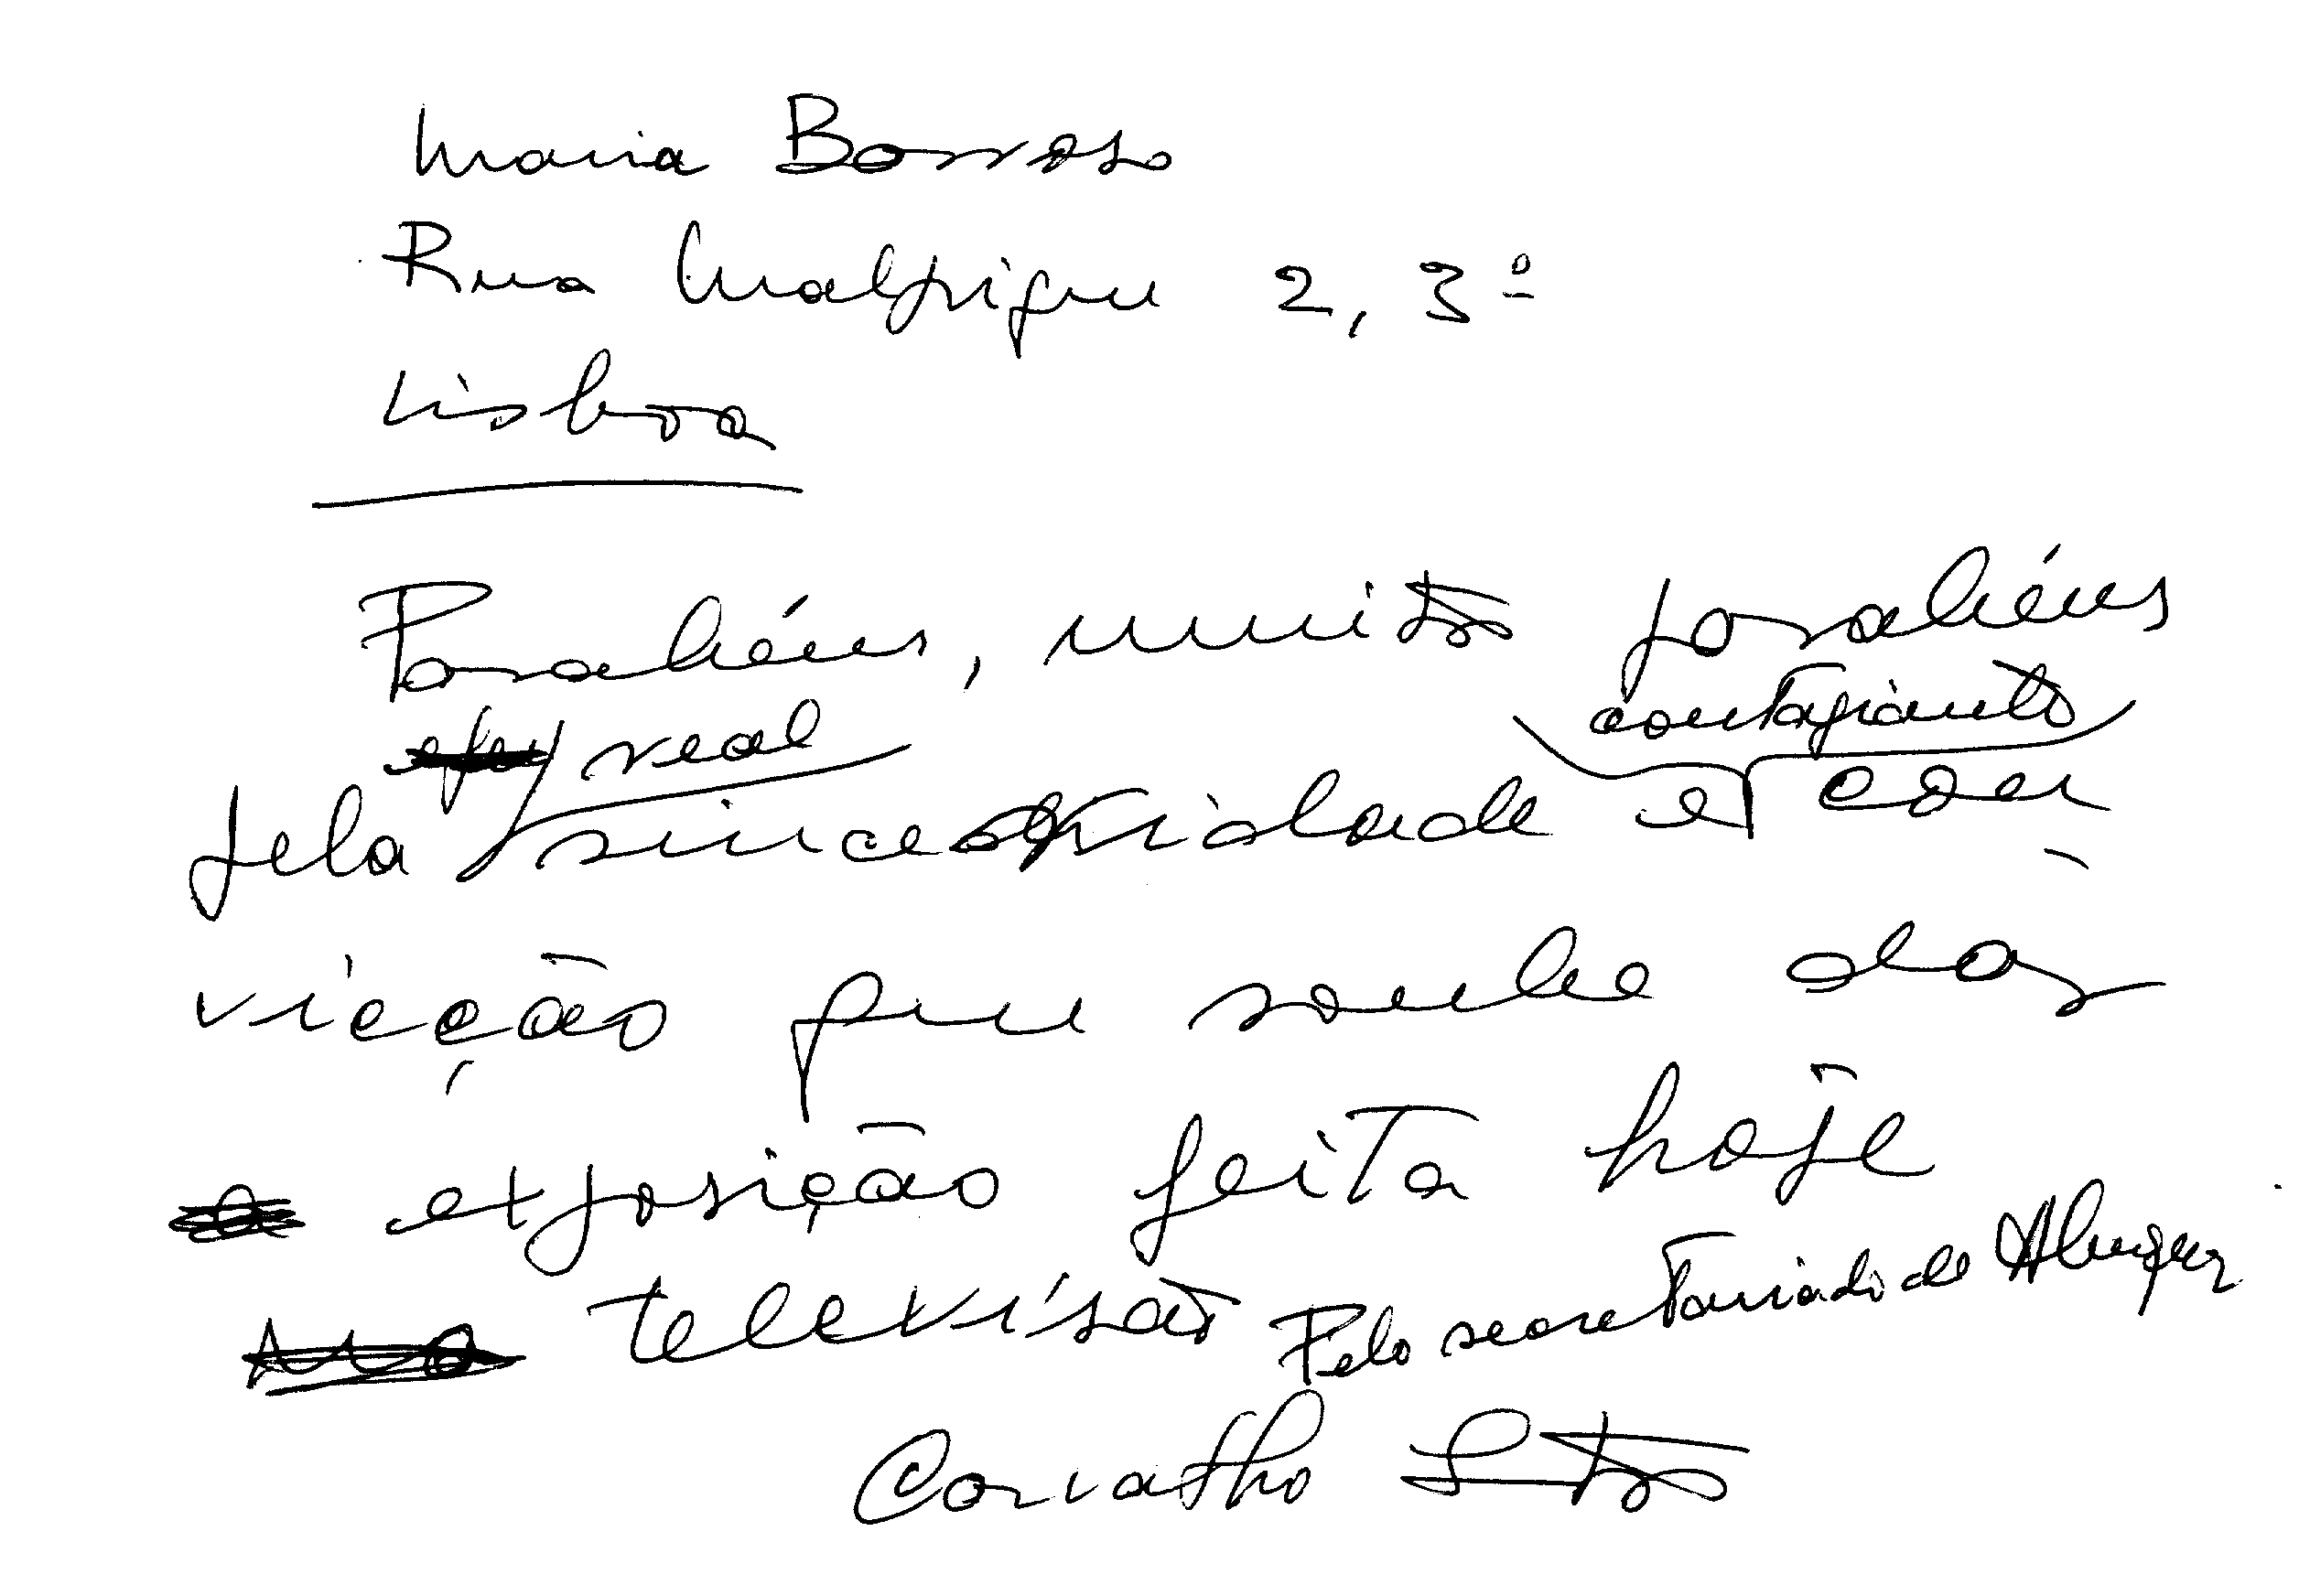 Maria Barroso
Rua Malpique 2, 3º
Lisboa
Parabéns, muitos parabéns
real contagiante
pela sinceridade e con
vicção que soube dar
exposição feita hoje
televisão Pelo secretariado de Alenquer
Carvalho